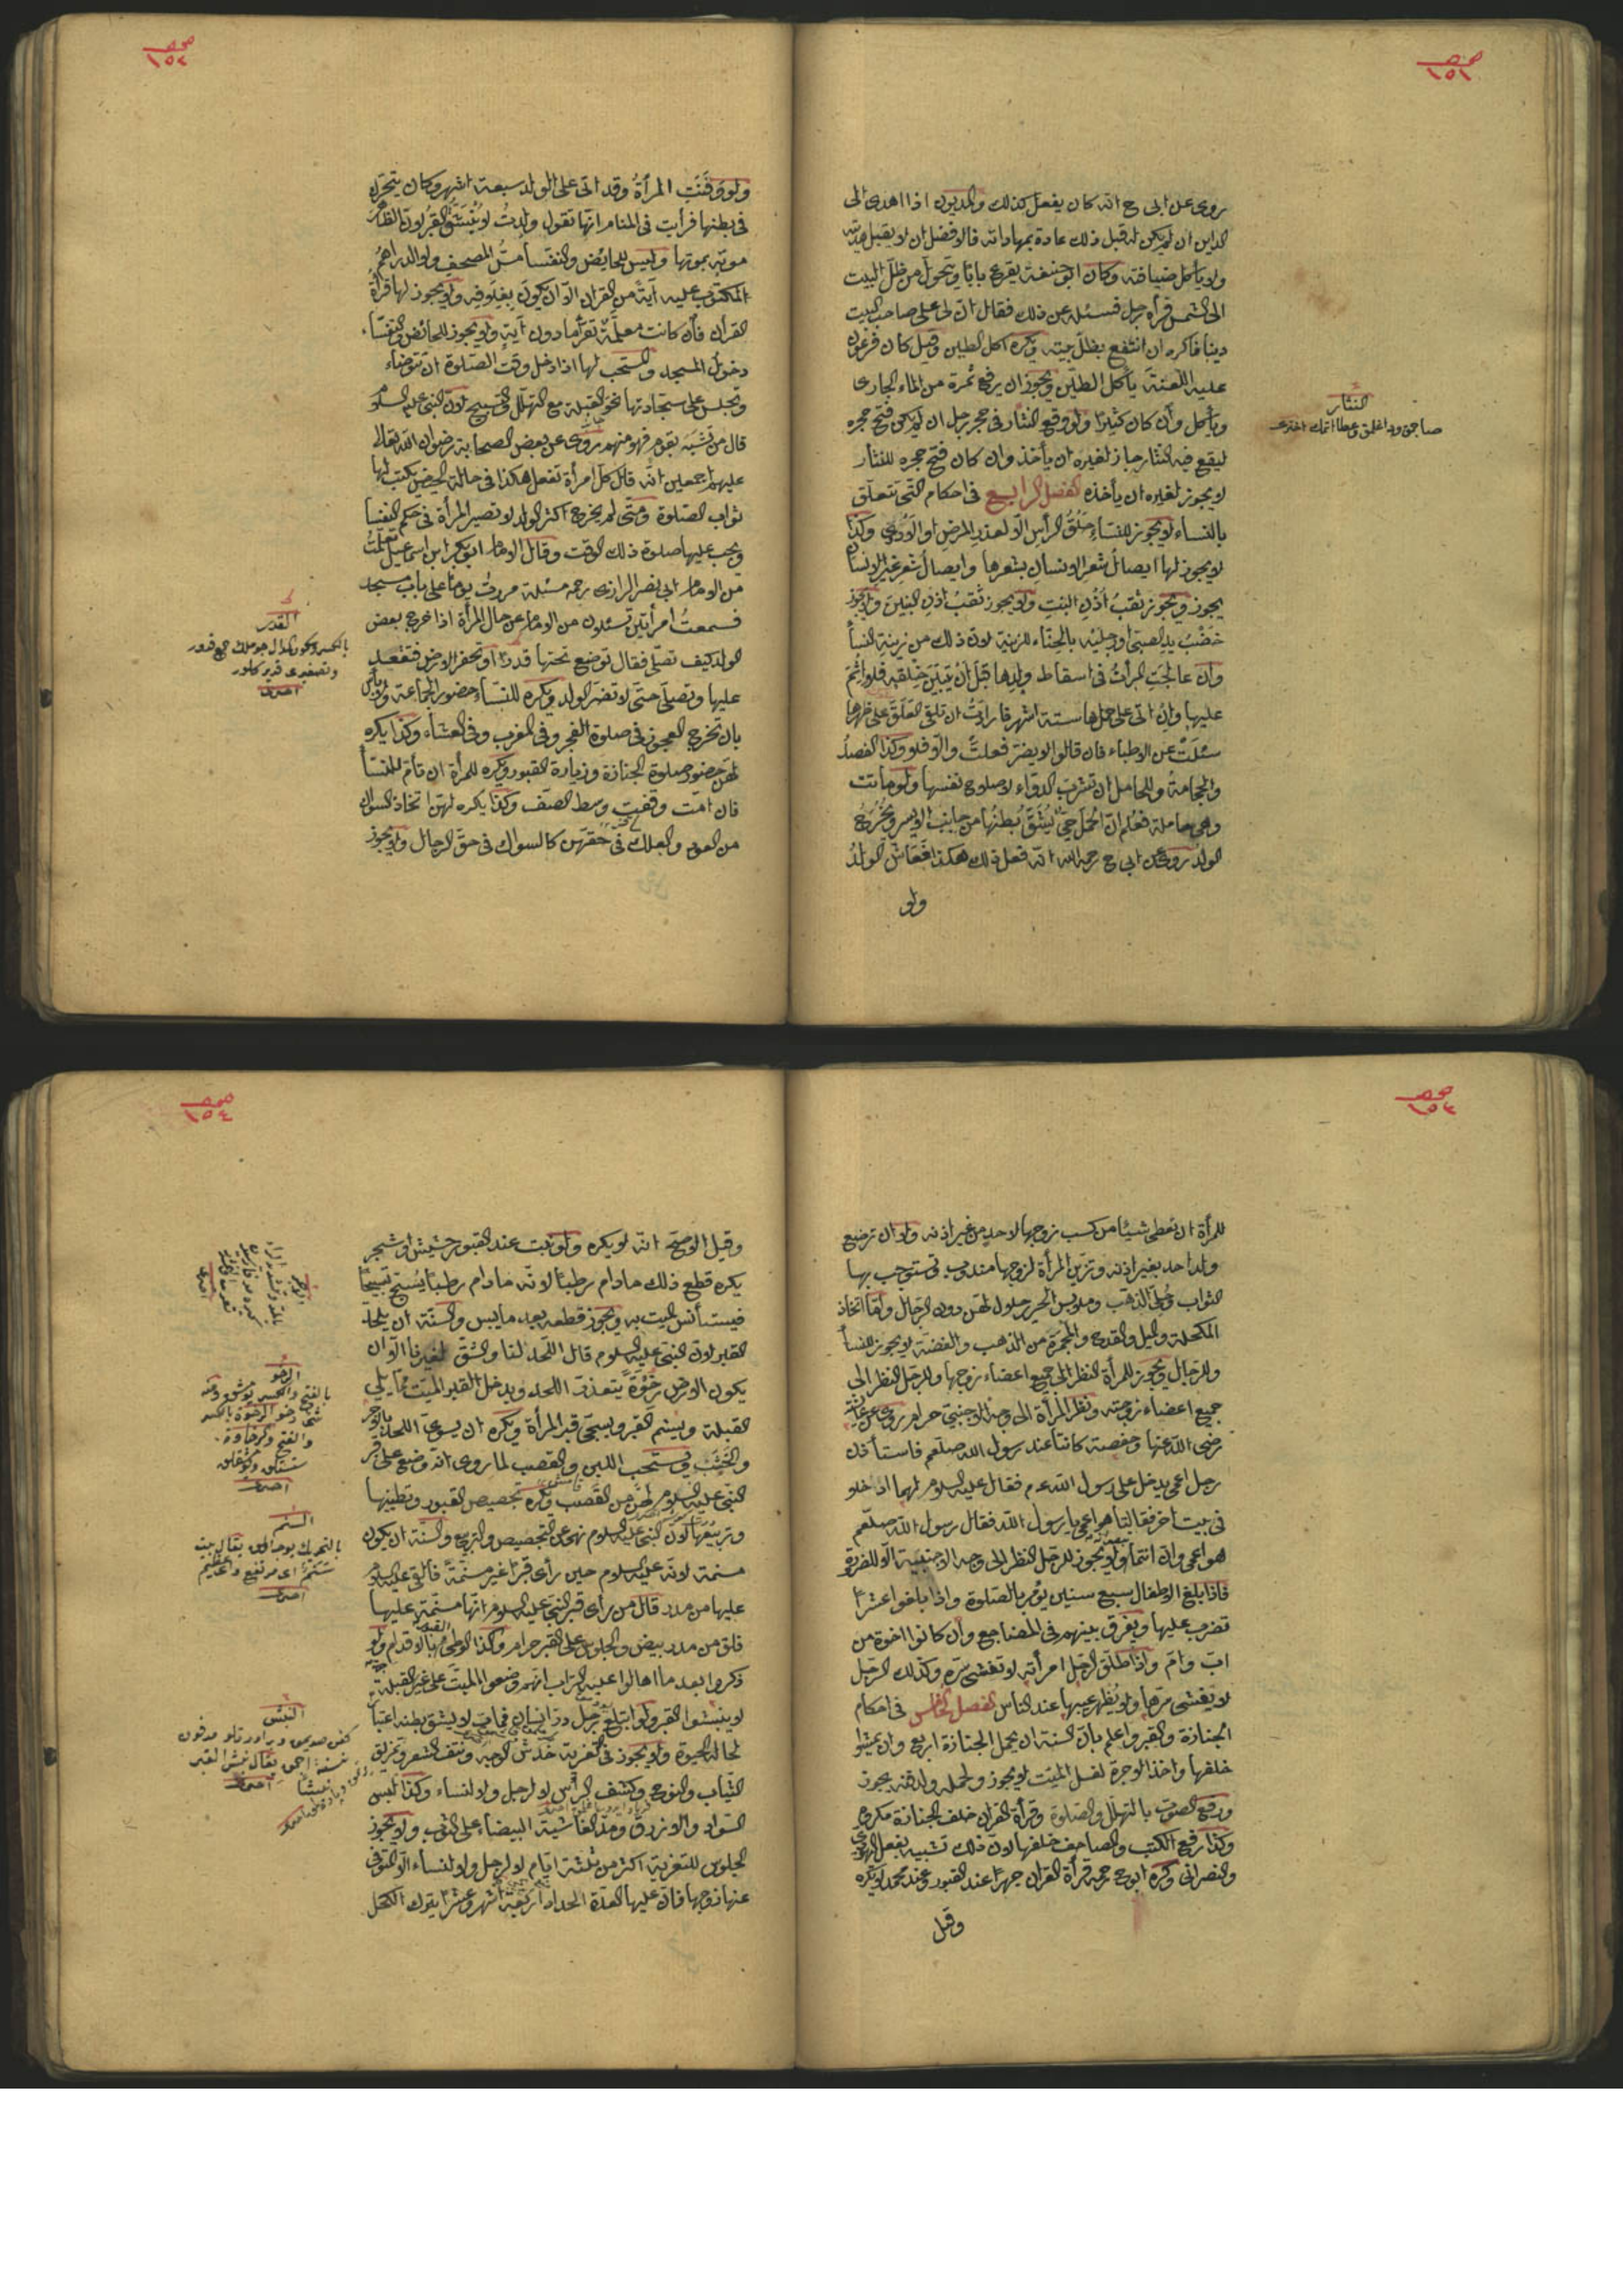 صحـ ١٥١
روى عن ابى ح انه كان يفعل كذلك والمديون اذا اهدى الى
الداين ان لم يكن له قبل ذلك عادة بمهاداته فالافضل ان لا يقبل هديته
ولا يأكل ضيافته وكان ابو حنيفة يقرع بابا ويتحول من ظل البيت
الى الشمس فرأه رجل فسئله عن ذلك فقال ان لى على صاحب البيت
دينا فاكره ان انتفع بظل بيته ويكره اكل الطين وقيل كان فرعون
عليه اللعنة يأكل الطين ويجوز ان يرفع ثمرة من الماء الجارى
ويأكل وأن كان كثيرا ولو وقع النثار فى حجر رجل ان لم يكن فتح حجره
ليقع فيه النثار جاز لغيره ان يأخذ وان كان فتح حجره للنثار
لا يجوز لغيره ان يأخذه الفصل الرابع فى احكام التى تتعلق
بالنساء لا يجوز للنساء حلق الرأس الا لعذر المرض او الاذى وكذا
لا يجوز لها ايصال شعر الانسان بشعرها وايصال شعر غير الانسان
يجوز ويجوز ثقب أذن البنت ولا يجوز ثقب اذن البنين ولا يجوز
خضب يد الصبى او رجليه بالحناء للزينة لان ذلك من زينة النسأ
وان عالجت المرأت فى اسقاط ولدها قبل ان يتبين خلقه فلا اثم
عليها وان اتى على حملها ستة اشهر فارادت ان تلقى العلق على ظهرها
سئلت عن الاطباء فان قالوا لا يضر فعلت والا فلا وكذا الفصد
والحجامة وللحامل ان تشرب الدواء لاصلاح نفسها ولو ماتت
وهى حاملة فعلم ان الحمل حى يشق بطنها من جانب الايسر ويخرج
الولد روى عن ابى ح رحمه الله انه فعل ذلك هكذا فعاش الولد
ولو
النثار
صحـ ١٥٢
ولو دفنت المرأة وقد اتى على الولد سبعة اشهر وكان يتحرك
فى بطنها فرأيت فى المنام انها تقول ولدت لا ينبش القبر لان الظاهر
موته بموتها وليس للحايض والنفسأ مس المصحف ولا الدراهم
المكتوب عليه آية من القران الا ان يكون بغلافه ولا يجوز لها قرأة
القرأن فأن كانت معلمة تقرأ مادون آية ولا يجوز للحائض والنفساء
دخول المسجد والمستحب لها اذا دخل وقت الصلوة ان تتوضاء
وتجلس على سجادتها نحو القبلة مع التهلل والتسبيح لان النبى عليه السلام
قال من تشبه بقوم فهو منهم روى عن بعض الصحابة رضوان الله تعالى
عليهم اجمعين انه قال كل امرأة تفعل هكذا فى حالة الحيض يكتب لها
ثواب الصلوة ومتى لم يخرج اكثر الولد لا تصير المرأة فى حكم النفسأ
ويجب عليها صلوة ذلك الوقت وقال الامام ابو بكر ابن اسمعيل تعلمت
من الامام ابى نصر الرازى رحمه مسئلة مررت يوما على باب مسجد
فسمعت امرأتين تسئلان من الامام عن حال المرأة اذا خرج بعض
الولد كيف تصلى فقال توضع تحتها قدرا او تحفر الارض فتقعد
عليها وتصلى حتى لا تضر الولد ويكره للنساء حضور الجماعة ولا بأس
بان تخرج العجوز فى صلوة الفجر وفى المغرب وفى العشاء وكذا يكره
لهن حضور صلوة الجنازة وزيارة القبور ويكره للمرأة ان تأم للنسأ
فان امت وقفت وسط الصف وكذا يكره لهن اتخاذ السواك
من العود والعلك فى حقهن كالسواك فى حق الرجال ولا يجوز
القدر
صحـ ١٥٣
للمرأة ان تعطى شيئا من كسب زوجها لاحد من غير اذنه ولا ان ترضع
ولد احد بغير اذنه وتزين المرأة لزوجها مندوب تستوجب بها
الثواب وحلى الذهب وملابس الحرير حلال لهن دون الرجال وأما اتخاذ
المكحلة والميل والقدح والمجمرة من الذهب والفضة لا يجوز للنسأ
وللرجال ويجوز للمرأة النظر الى جميع اعضاء زوجها وللرجل النظر الى
جميع اعضاء زوجته ونظر المرأة الى وجه الاجنبى حرام روى عن عائشة
رضى الله عنها وحفصة كانتا عند رسول الله صلعم فاستأذن
رجل اعمى يدخل على رسول الله عم فقال عليه السلام لهما ادخلا
فى بيت آخر فقالتا هو اعمى يا رسول الله فقال رسول الله صلعم
هو اعمى وان انتما ولا يجوز للرجل النظر الى وجه الاجنبية الا للضرورة
فاذا بلغ الاطفال سبع سنين يؤمر بالصلوة واذا بلغوا عشرا
تضرب عليها ويفرق بينهم فى المضاجع وأن كانوا اخوة من
اب وام واذا طلق الرجل امرأته لا تفشى سره وكذلك الرجل
لا يفشى سرها ولا يظهر عيبها عند الناس الفصل الخامس فى احكام
الجنازة والقبر واعلم بان السنة ان يحمل الجنازة اربع وان يمشوا
خلفها واخذ الاجرة لغسل الميت لا يجوز ولحمله ولدفنه يجوز
ورفع الصوت بالتهلل والصلوة وقرأة القران خلف الجنازة مكروه
وكذا رفع الكتب والمصاحف خلفها لان ذلك تشبيه بفعل اليهودى
والنصرانى وكره ابو ح رحمه قرأة القران جهرا عند القبور وعند محمد لا يكره
وقيل
صحـ ١٥٤
وقيل الاصح انه لا يكره ولو نبت عند القبور حشيش او شجر
يكره قطع ذلك مادام رطبا لانه مادام رطبا يسبح تسبيحا
فيستأنس الميت به ويجوز قطعه بعد ما يبس والسنة ان يلحد
القبر لان النبى عليه السلام قال اللحد لنا والشق لغيرنا الا ان
يكون الارض رخوة يتعذر اللحد ويدخل القبر الميت مما يلى
القبلة ويسنم القبر ويسجى قبر المرأة ويكره ان يسوى اللحد بالآجر
والخشب ويستحب اللبن والقصب لما روى انه وضع على قبر
النبى عليه السلام طن من القصب ويكره تجصيص القبور وتطيينها
وتربيعها لان النبى عليه السلام نهى عن التجصيص والتربيع والسنة ان يكون
مسنمة لانه عليه السلام حين رأى قبرا غير مسنمة فألقى عليه السلام
عليها من مدر قال من رأى قبر النبى عليه السلام انها مسنمة عليها
فلق من مدر بيض والجلوس على القبر حرام وكذا الوطئ بالاقدام ولو
ذكروا بعد ما اهالوا عليه التراب انهم وضعوا الميت على غير القبلة
لا ينبشوا القبر ولو ابتلع رجل در انسان فمات لا يشق بطنه اعتبارا
لحالة الحيوة ولا يجوز فى التعزية خدش الوجه ونتف الشعر وتمزيق
الثياب والنوح وكشف الرأس لا لرجل ولا لنساء وكذا لبس
السواد والازرق ومد الغاشية البيضاء على الثوب ولا يجوز
الجلوس للتعزية اكثر من ثلثة ايام لا لرجل ولا لنساء الا المتوفى
عنها زوجها فان عليها العدة الحداد اربعة اشهر وعشرا يترك الكحل
الرخو
السنم
النبش